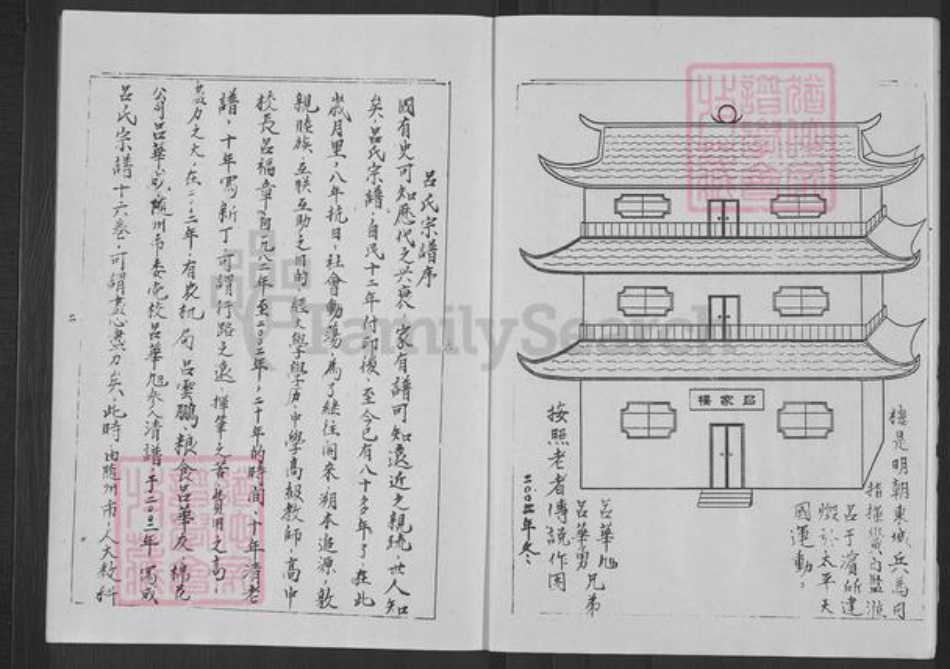 樓是明朝東城兵馬司
指揮賞白藍𣸣
呂于濱所建
燬於太平天
國運動,
呂家樓
呂華旭
呂華勇兄弟
按照老者傳説作圖
二00二年冬.
呂氏宗譜序
國有史可知歷代之兴衰,家有譜可知遠近之親疏,世人知
矣,呂氏宗譜,自民十二年付印後,至今已有八十多年了,在此
歲月里,八年抗日,社會動蕩,為了継往開来,朔本追源,敦
親睦族,互联互助之目的,經大學學历中學高級教師,高中
校長呂福章自一九八二年至二00二年,二十年的時間,十年清老
譜,十年寫新丁可謂行路之遠,揮筆之苦,費用之高,
盡力之大,在二00二年,有农机局呂雲鵬,粮食呂華友,棉花
公司呂華武,隨州市委党校呂華旭参入清譜,于二00二年寫成
呂氏宗譜十六卷,可謂盡心盡力矣,此時由隨州市,人大教科
二
FamilySearch